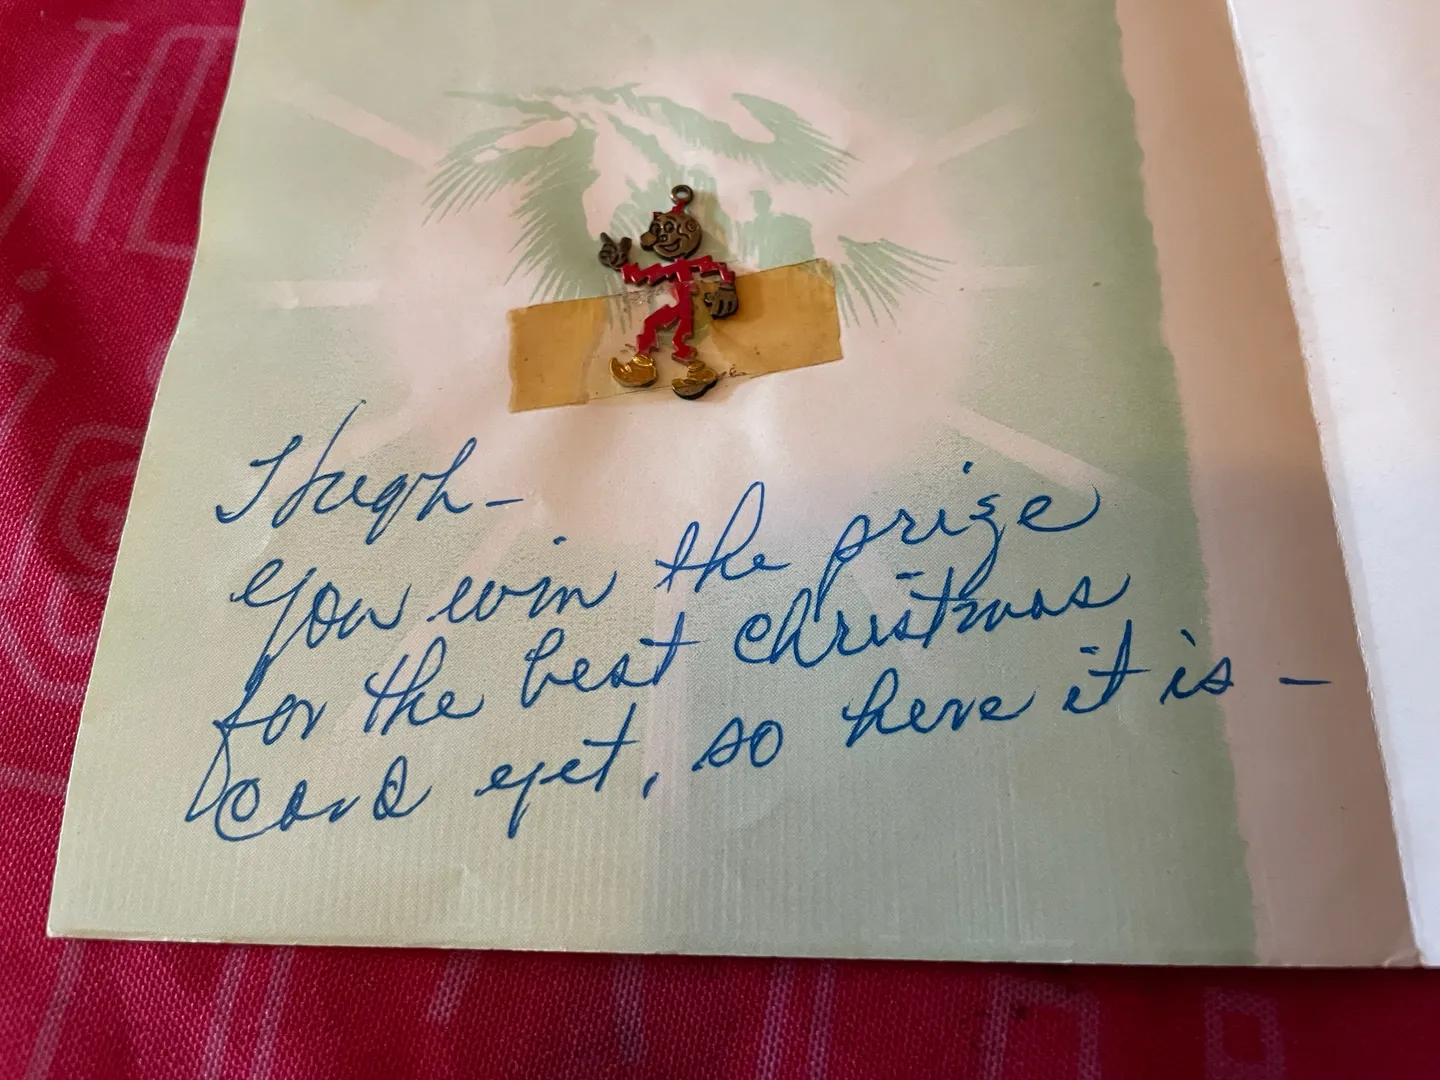 Hugh-
You win the prize
for the best Christmas
card yet, so here it is -